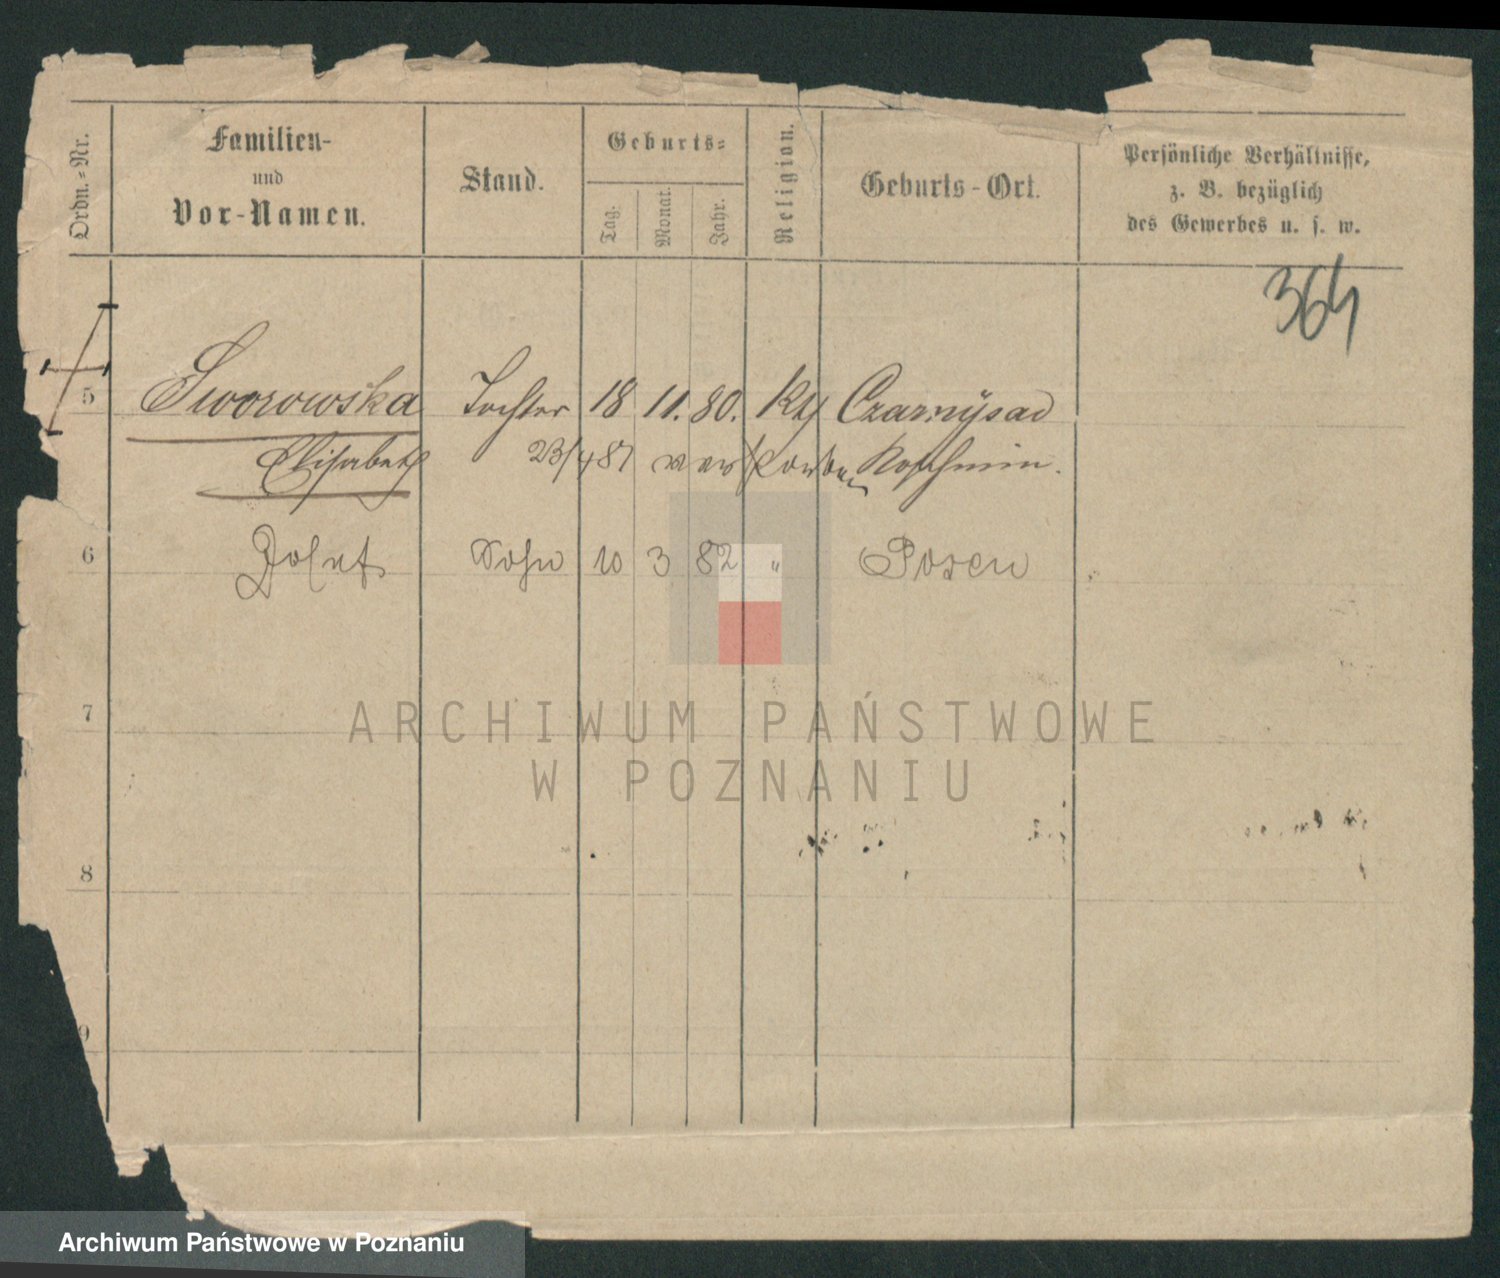 Ordn.-Nr.
Familien-
und
Vor-Namen.
Stand.
Geburts-
Tag.
Monat.
Jahr.
Religion.
Geburts-Ort.
Persönliche Verhältnisse,
z. B. bezüglich
des Gewerbes u. s. w.
364
5 Sworowska Tochter 18 11. 80. kth Czarnysad
Elisabeth 23/4 81 verstorben Koschmin.
6 Josef Sohn 10 3 82 " Posen
7
ARCHIWUM PAŃSTWOWE
W POZNANIU
8
9
Archiwum Państwowe w Poznaniu